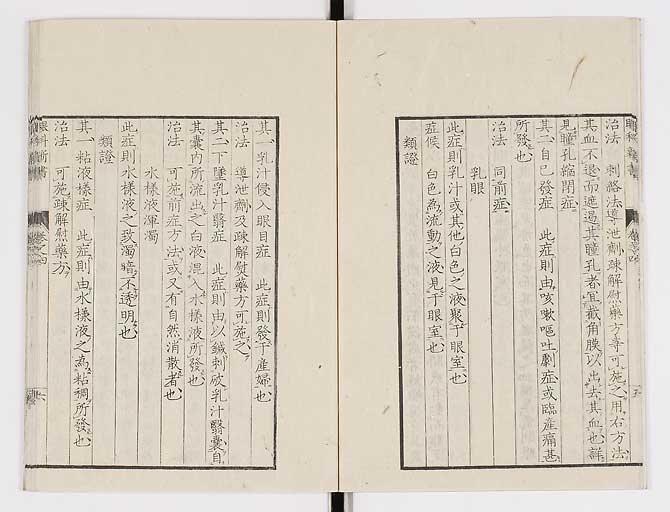 治法　刺絡法導泄劑疎解慰藥方等可施之用右方法
其血不退而遮遏其瞳孔者宜截角膜以出去其血也詳
見瞳孔縮閉症
其二自已發症　此症則由咳嗽嘔吐劇症或臨産痛甚
所發也
治法　同前症
乳眼
此症則乳汁或其他白色之液聚于眼室也
症候　白色為流動之液見于眼室也
類證
其一乳汁侵入眼目症　此症則發于産婦也
治法　導泄劑及疎解慰藥方可施之
其二下墜乳汁翳症　此症則由以鍼刺破乳汁翳囊自
其囊内所流出之白液混入水樣液所發也
治法　可施前症方法或又有自然消散者也
水樣液渾濁
此症則水樣液之致濁暗不透明也
類證
其一粘液樣症　此症則由水樣液之為粘稠所發也
治法　可施疎解慰藥方
眼科新書
卷之四
六